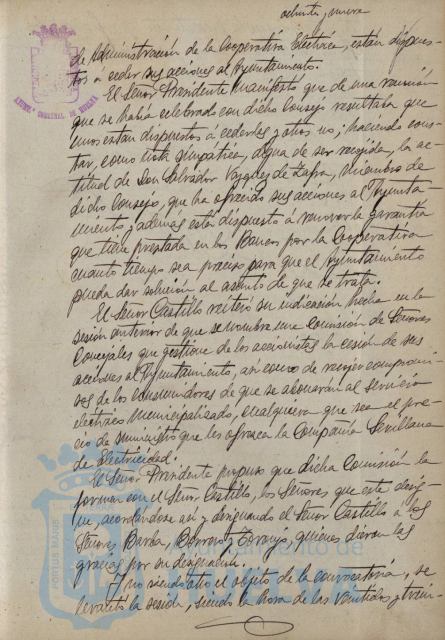 ochenta y nueve
de Administración de la Cooperativa Eléctrica, están dispues-
tos a ceder sus acciones al Ayuntamiento.
El Señor Presidente manifestó que de una reunión
que se había celebrado con dicho Consejo resultaba que
unos están dispuestos á cederlas y otros no; haciendo cons-
tar, como nota simpática, digna de ser recogida, la ac-
titud de Don Salvador Vazquez de Zafra, miembro de
dicho Consejo, que ha ofrecido sus acciones al Ayunta-
miento y además está dispuesto á renovar la garantía
que tiene prestada en los Bancos por la Cooperativa
cuanto tiempo sea preciso para que el Ayuntamiento
pueda dar solución al asunto de que se trata.
El Señor Castillo reiteró su indicación hecha en la
sesión anterior de que se nombre una Comisión de Señores
Concejales que gestione de los accionistas la cesión de sus
acciones al Ayuntamiento, así como de recojer compromi-
sos de los consumidores de que se abonarán al servicio
eléctrico municipalizado, cualquiera que sea el pre-
cio de suministro que les ofrezca la Compañía Sevillana
de Electricidad.
El Señor Presidente propuso que dicha Comisión la
formen con el Señor Castillo, los Señores que este desig-
ne, acordándose así y designando el Señor Castillo á los
Señores Barba, y quienes dieron las
gracias por su designación.
Y no siendo otro el objeto de la convocatoria, se
levantó la sesión, siendo la hora de las veintidos y trein-